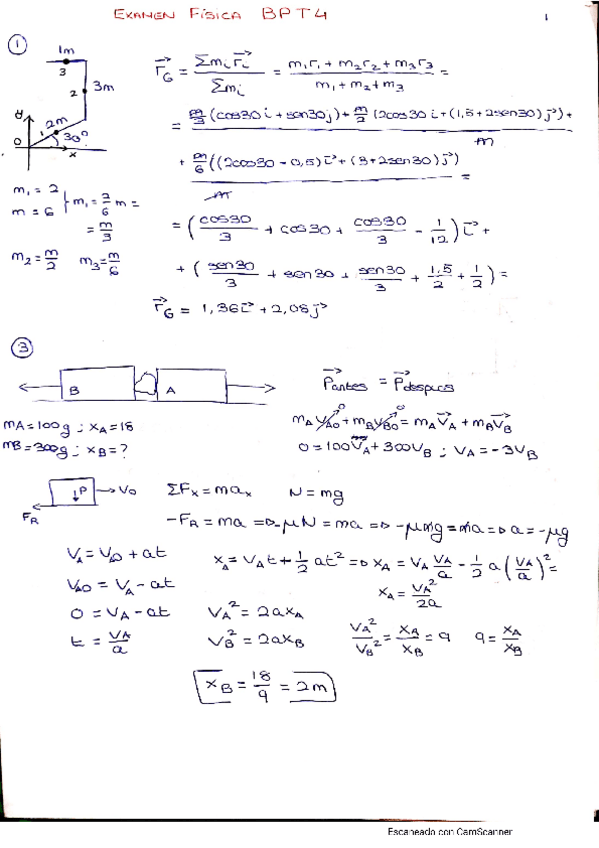 EXAMEN FÍSICA BPT4
1
①
1m
3
2
3m
y
2m
1
30º
O
x
r⃗G = Σmi r⃗i / Σmi = m1r1 + m2r2 + m3r3 / m1 + m2 + m3 =
= m/3 (cos30 i + sen30 j) + m/2 (2cos30 i + (1,5 + 2sen30) j⃗) +
m
+ m/6 ((2cos30 - 0,5) i⃗ + (3 + 2sen30) j⃗) =
m
m1 = 2
m = 6 } m1 = 2/6 m =
= m/3
m2 = m/2 m3 = m/6
= (cos30/3 + cos30 + cos30/3 - 1/12) i⃗ +
+ (sen30/3 + sen30 + sen30/3 + 1,5/2 + 1/2) =
r⃗G = 1,36 i⃗ + 2,08 j⃗
③
B A
P⃗antes = P⃗después
mA = 100g ; xA = 18
mB = 300g ; xB = ?
mA vAo⁰ + mB vBo⁰ = mA v⃗A + mB v⃗B
0 = 100v⃗A + 300vB ; vA = -3vB
P
vo
FR
ΣFx = max N = mg
-FR = ma => -μN = ma => -μmg = ma => a = -μg
vA = vAo + at
xA = vAt + 1/2 at² => xA = vA vA/a - 1/2 a (vA/a)² =
vAO = vA - at
xA = vA²/2a
0 = vA - at
vA² = 2axA
t = vA/a
vB² = 2axB
vA²/vB² = xA/xB = 9 9 = xA/xB
xB = 18/9 = 2m
Escaneado con CamScanner